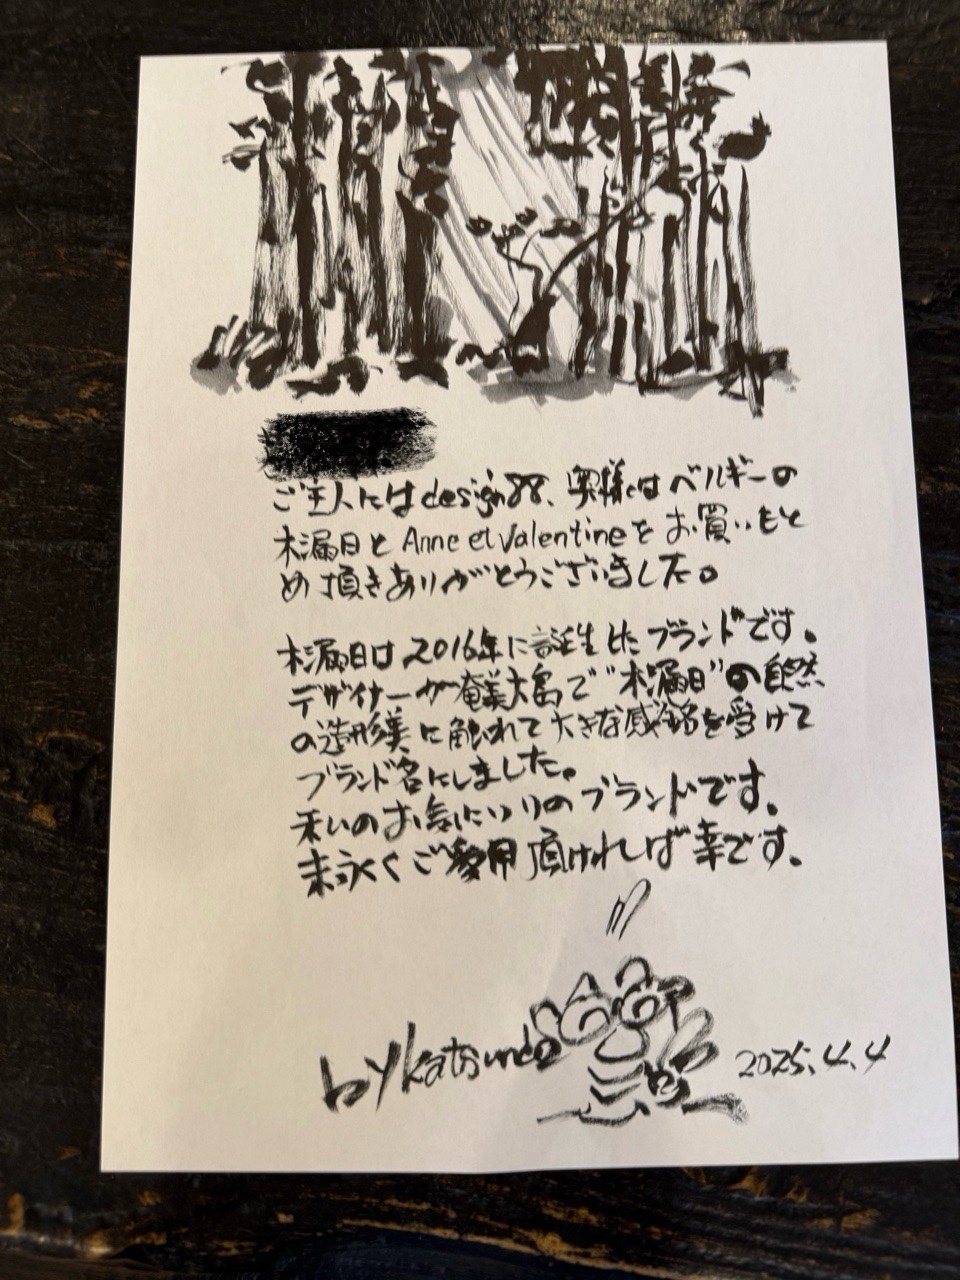 ご主人にはdesign88、奥様はベルギーの
木漏日とAnne et Valentineをお買いもと
め頂きありがとうございました。
木漏日は2016年に誕生したブランドです。
デザイナーが奄美大島で"木漏日"の自然
の造形美に触れて大きな感銘を受けて
ブランド名にしました。
私のお気にいりのブランドです。
末永くご愛用頂ければ幸です。
by Katsundo
2025.4.4